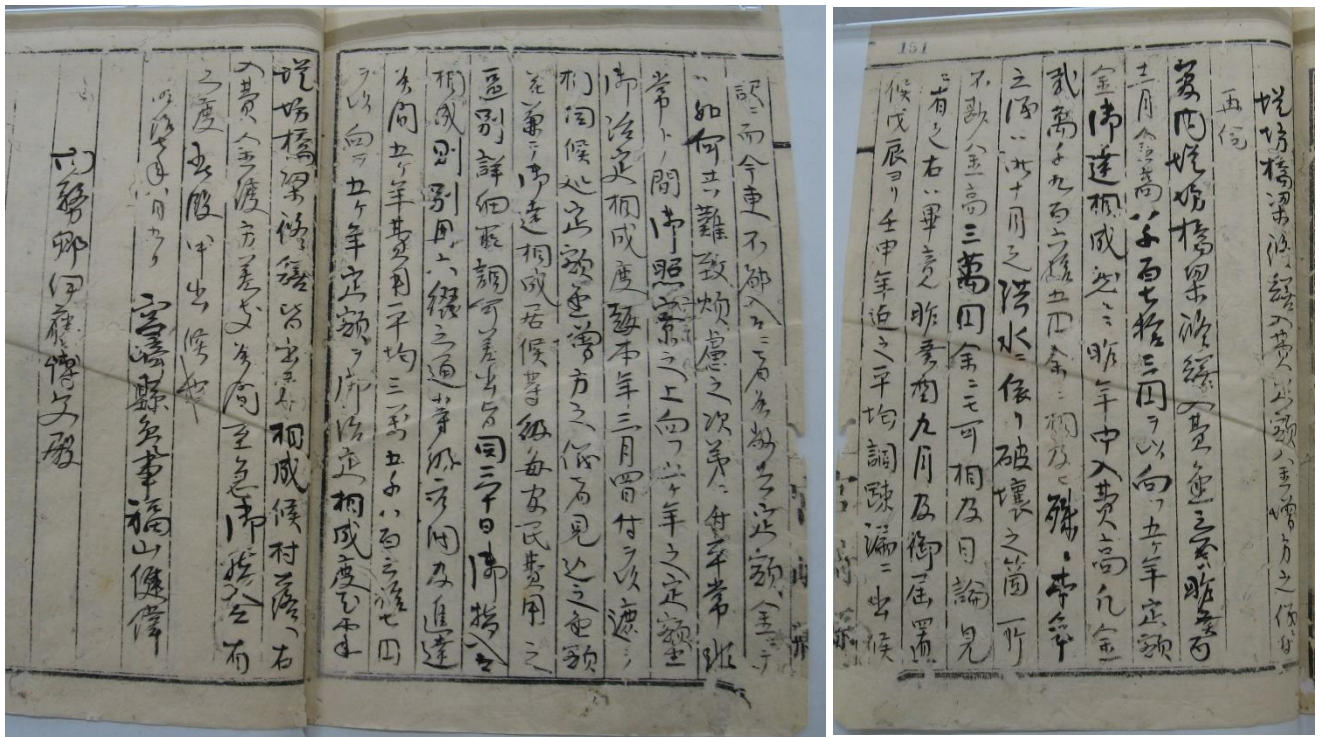 151
堤坊橋梁修繕入費定額金増方之儀ニ付
再伺
管内堤坊橋梁修繕入費金之義昨癸酉
十二月金高八千百七拾三円ヲ以向フ五ヶ年定額
金御達相成然ニ昨年中入費高凡金
貳萬千九百六拾五円余ニ相及ヒ殊ニ本年
之儀ハ此十月之洪水ニ依リ破壊之箇所
不尠金高三萬円余ニモ可相及目論見
ニ有之右ハ畢竟昨癸酉九月及御届置
候戊辰ヨリ壬申年迄之平均調踈漏ニ出候
訳ニ而今更不都合ニ者候得共定額金ニテ
ハ如何共難致煩慮之次第ニ付平常非
常トノ間御照察之上向フ五ヶ年之定額
御治定相成度段本年三月四日付ヲ以
相伺候処定額金増方之儀者見込之金額
ニ御達相成居候等級毎官民費用之
區別詳細取調可差出旨同二十日御指令
相成則別冊六綴之通等級 及進達
年間五ヶ年費用平均三萬五千八百三拾七円
ヲ以向フ五ヶ年定額ヲ御治定相成度
堤坊橋梁修繕皆 相成候村落ヘ右
入費金渡方差支 至急御指令有
之度此段申出候也
明治七年八月九日 宮崎縣参事福山健偉
内務卿伊藤博文殿